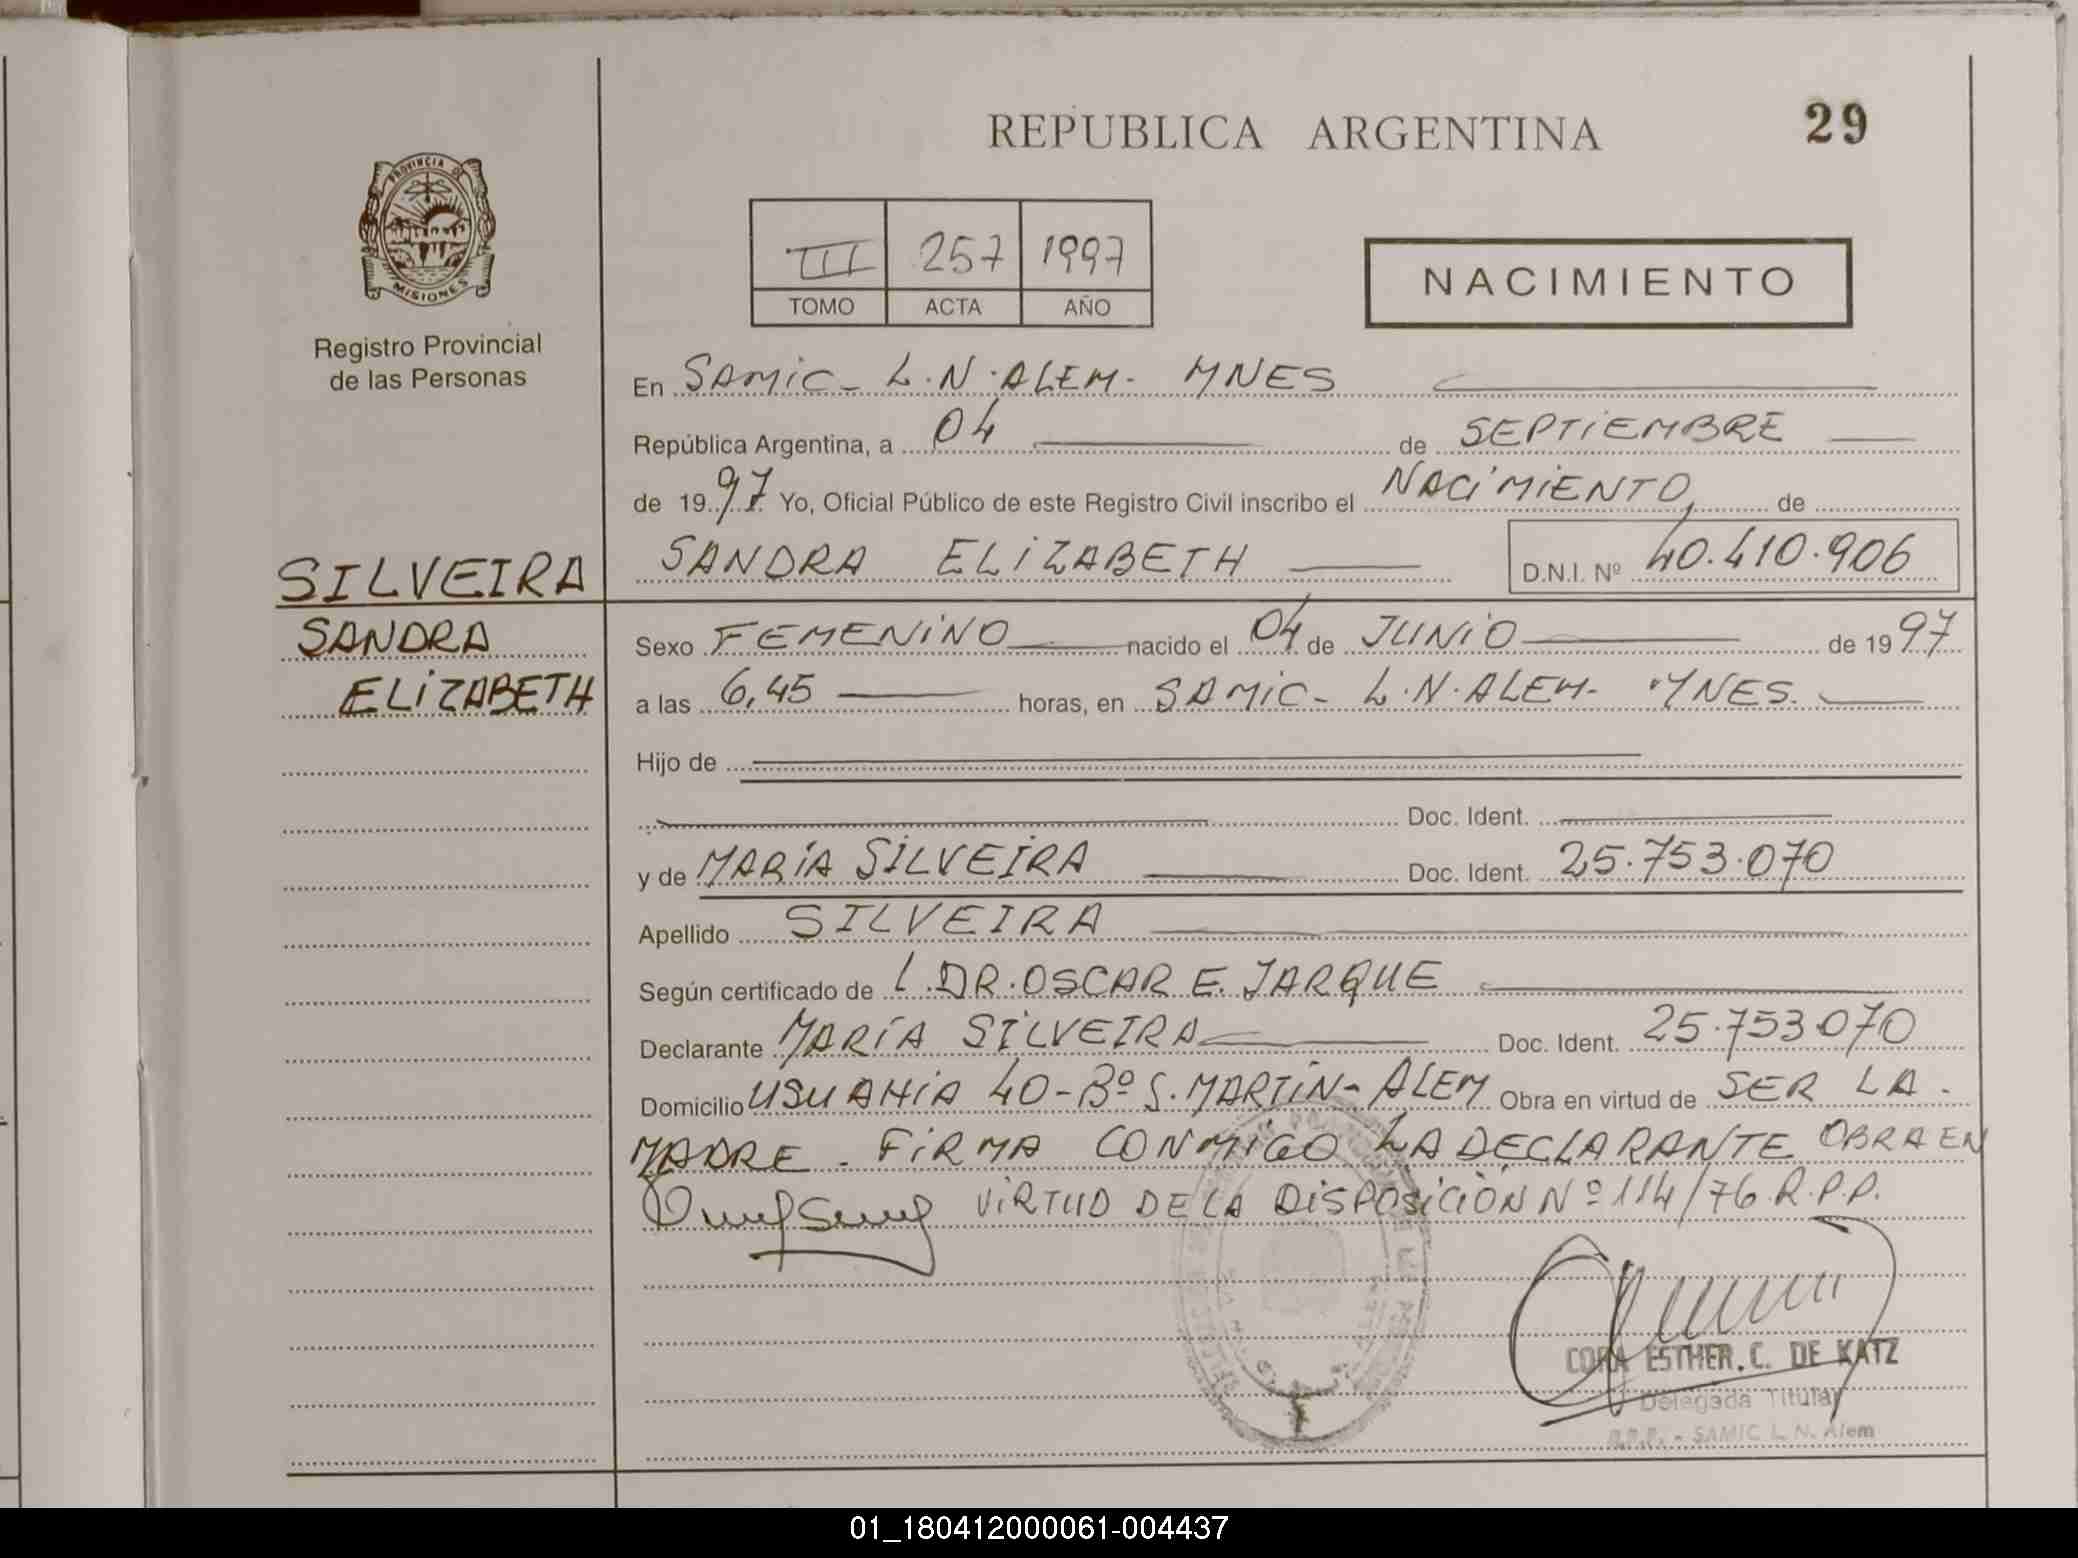 REPUBLICA ARGENTINA
29
PROVINCIA DE
MISIONES
Registro Provincial
de las Personas
III 257 1997
TOMO ACTA AÑO
NACIMIENTO
En SAMIC - L.N. ALEM - MNES
República Argentina, a 04 de SEPTIEMBRE
de 1997 Yo, Oficial Público de este Registro Civil inscribo el NACIMIENTO, de
SANDRA ELIZABETH D.N.I. Nº 40.410.906
SILVEIRA
SANDRA
ELIZABETH
Sexo FEMENINO nacido el 04 de JUNIO de 1997
a las 6,45 horas, en SAMIC - L.N. ALEM - MNES.
Hijo de
Doc. Ident.
y de MARÍA SILVEIRA Doc. Ident. 25.753.070
Apellido SILVEIRA
Según certificado de L. DR. OSCAR E. JARQUE
Declarante MARÍA SILVEIRA Doc. Ident. 25.753070
Domicilio USUAHIA 40 - Bº S. MARTIN - ALEM Obra en virtud de SER LA
MADRE - FIRMA CONMIGO LA DECLARANTE OBRA EN
VIRTUD DE LA DISPOSICIÓN Nº 114/76 R.P.P.
CORA ESTHER. C. DE KATZ
Delegada Titular
R.P.P. - SAMIC L. N. Alem
01_180412000061-004437